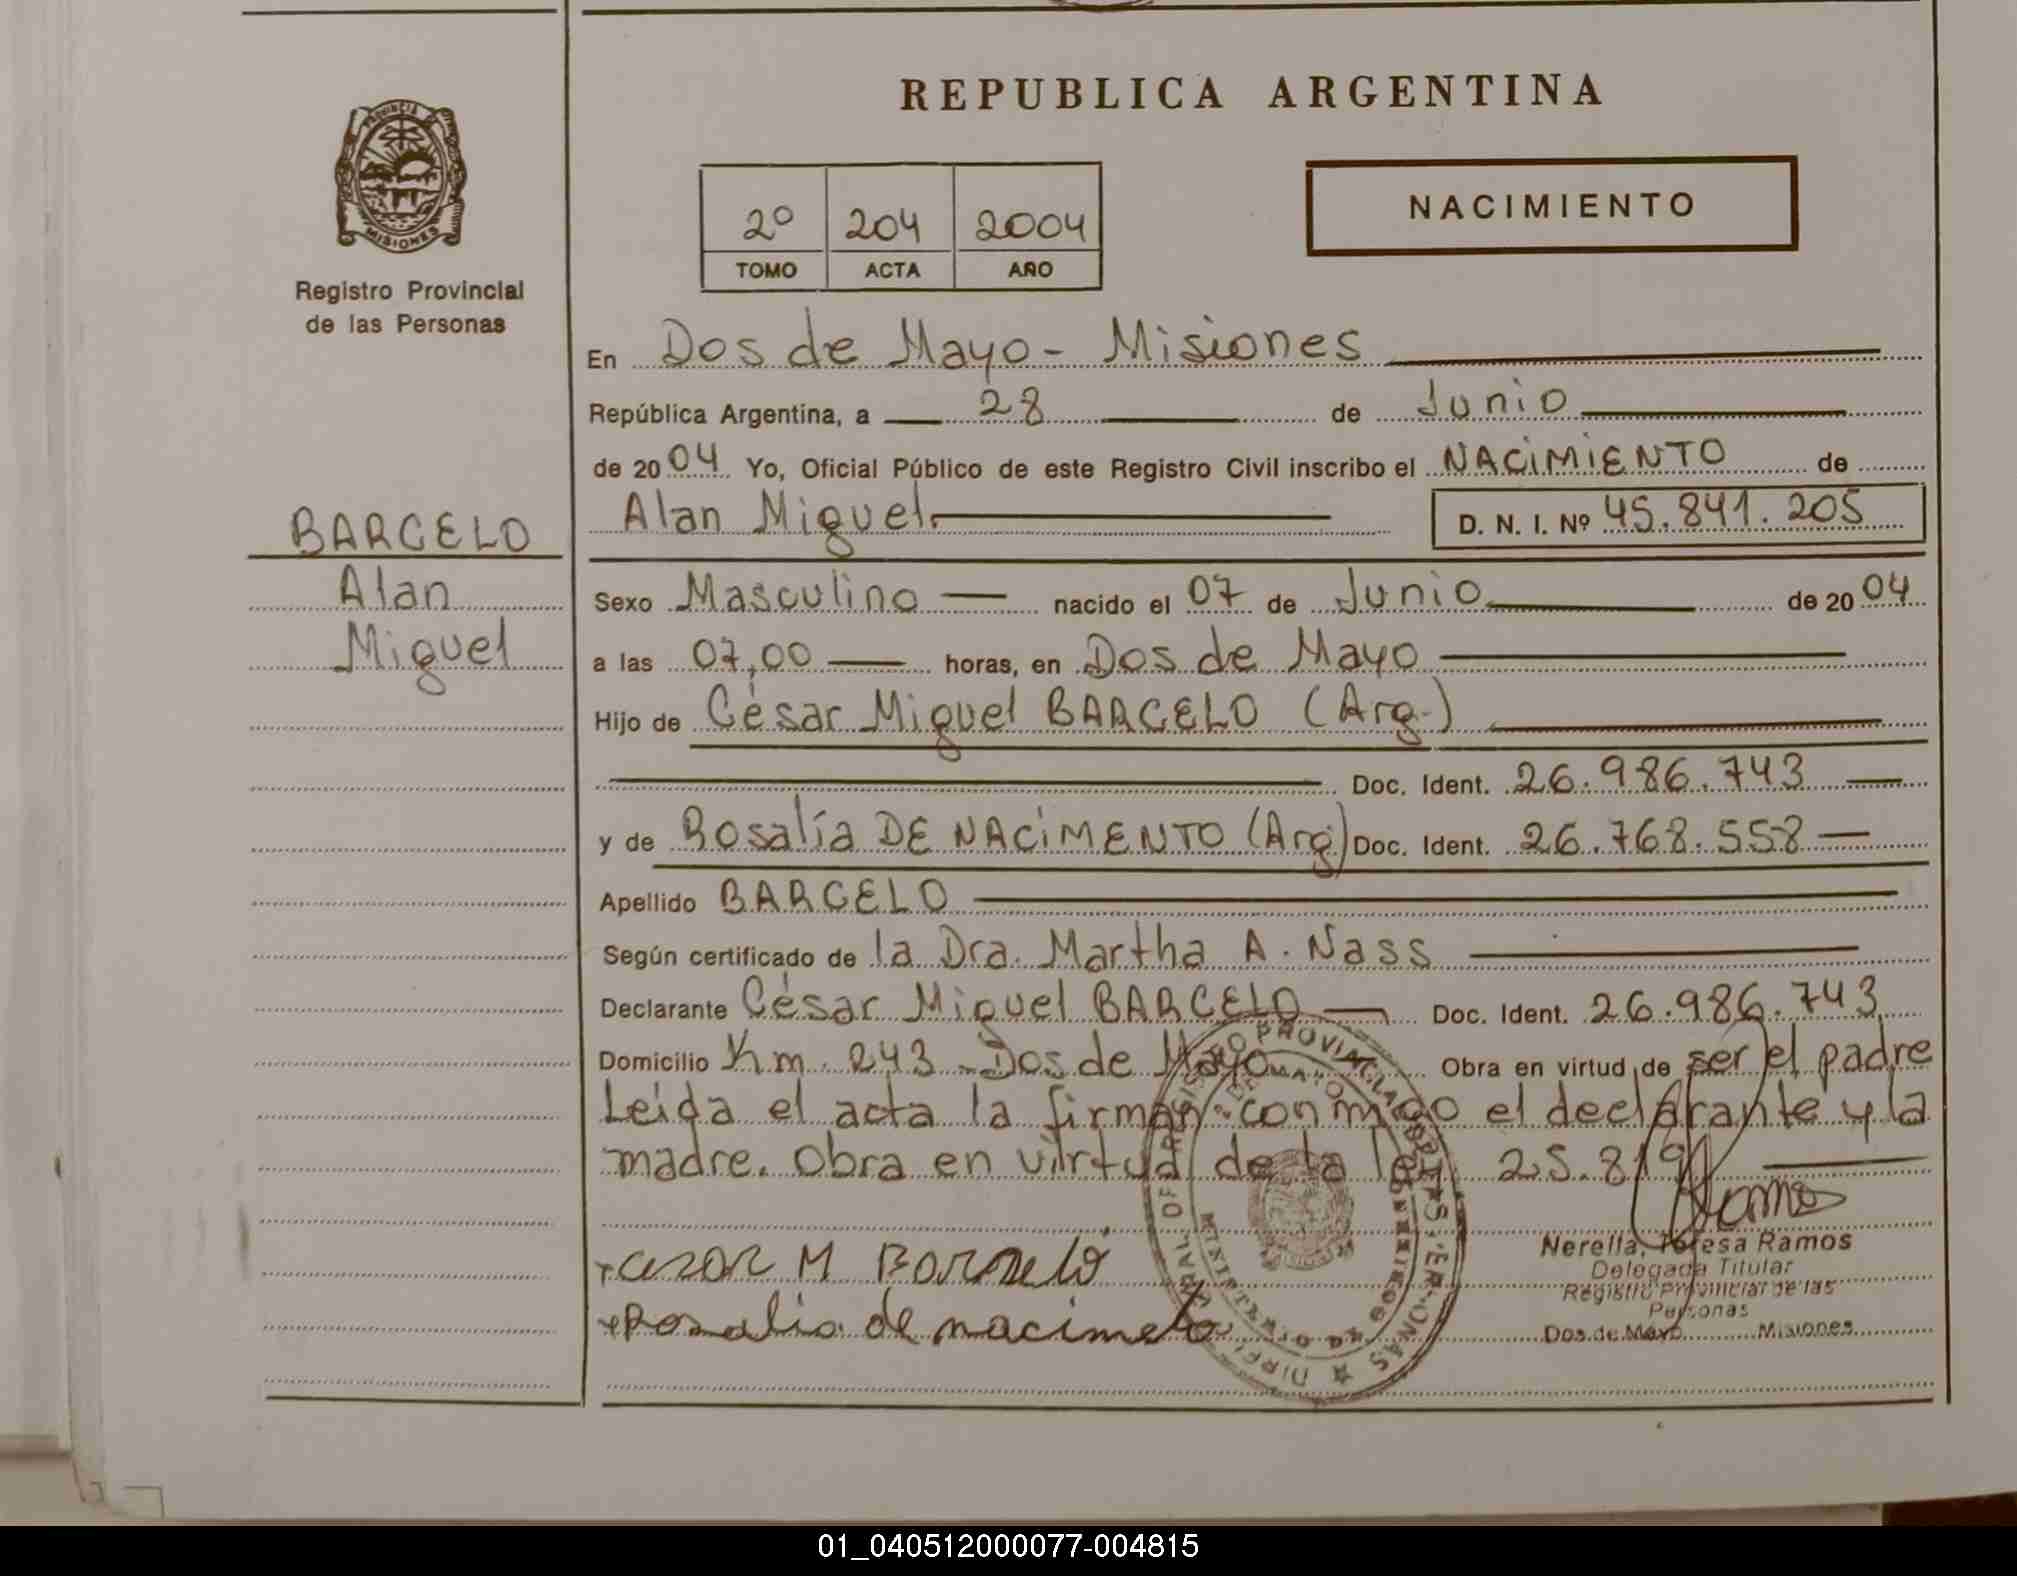 REPUBLICA ARGENTINA
PROVINCIA
MISIONES
Registro Provincial
de las Personas
NACIMIENTO
2º 204 2004
TOMO ACTA AÑO
En Dos de Mayo - Misiones
República Argentina, a 28 de Junio
de 2004 Yo, Oficial Público de este Registro Civil inscribo el NACIMIENTO de
Alan Miguel. D. N. I. Nº 45.841.205
BARCELO
Alan
Miguel
Sexo Masculino nacido el 07 de Junio de 2004
a las 07,00 horas, en Dos de Mayo
Hijo de César Miguel BARCELO (Arg.)
Doc. Ident. 26.986.743
y de Rosalía DE NACIMENTO (Arg) Doc. Ident. 26.768.558
Apellido BARCELO
Según certificado de la Dra. Martha A. Nass
Declarante César Miguel BARCELO Doc. Ident. 26.986.743
Domicilio Km. 243 - Dos de Mayo Obra en virtud de ser el padre
Leída el acta la firman conmigo el declarante y la
madre. Obra en virtud de la ley 25.819
Nerella, Teresa Ramos
Delegada Titular
Registro Provincial de las
Personas
Dos de Mayo Misiones
cesar M Barcelo
Rosalia de nacimeto
01_040512000077-004815